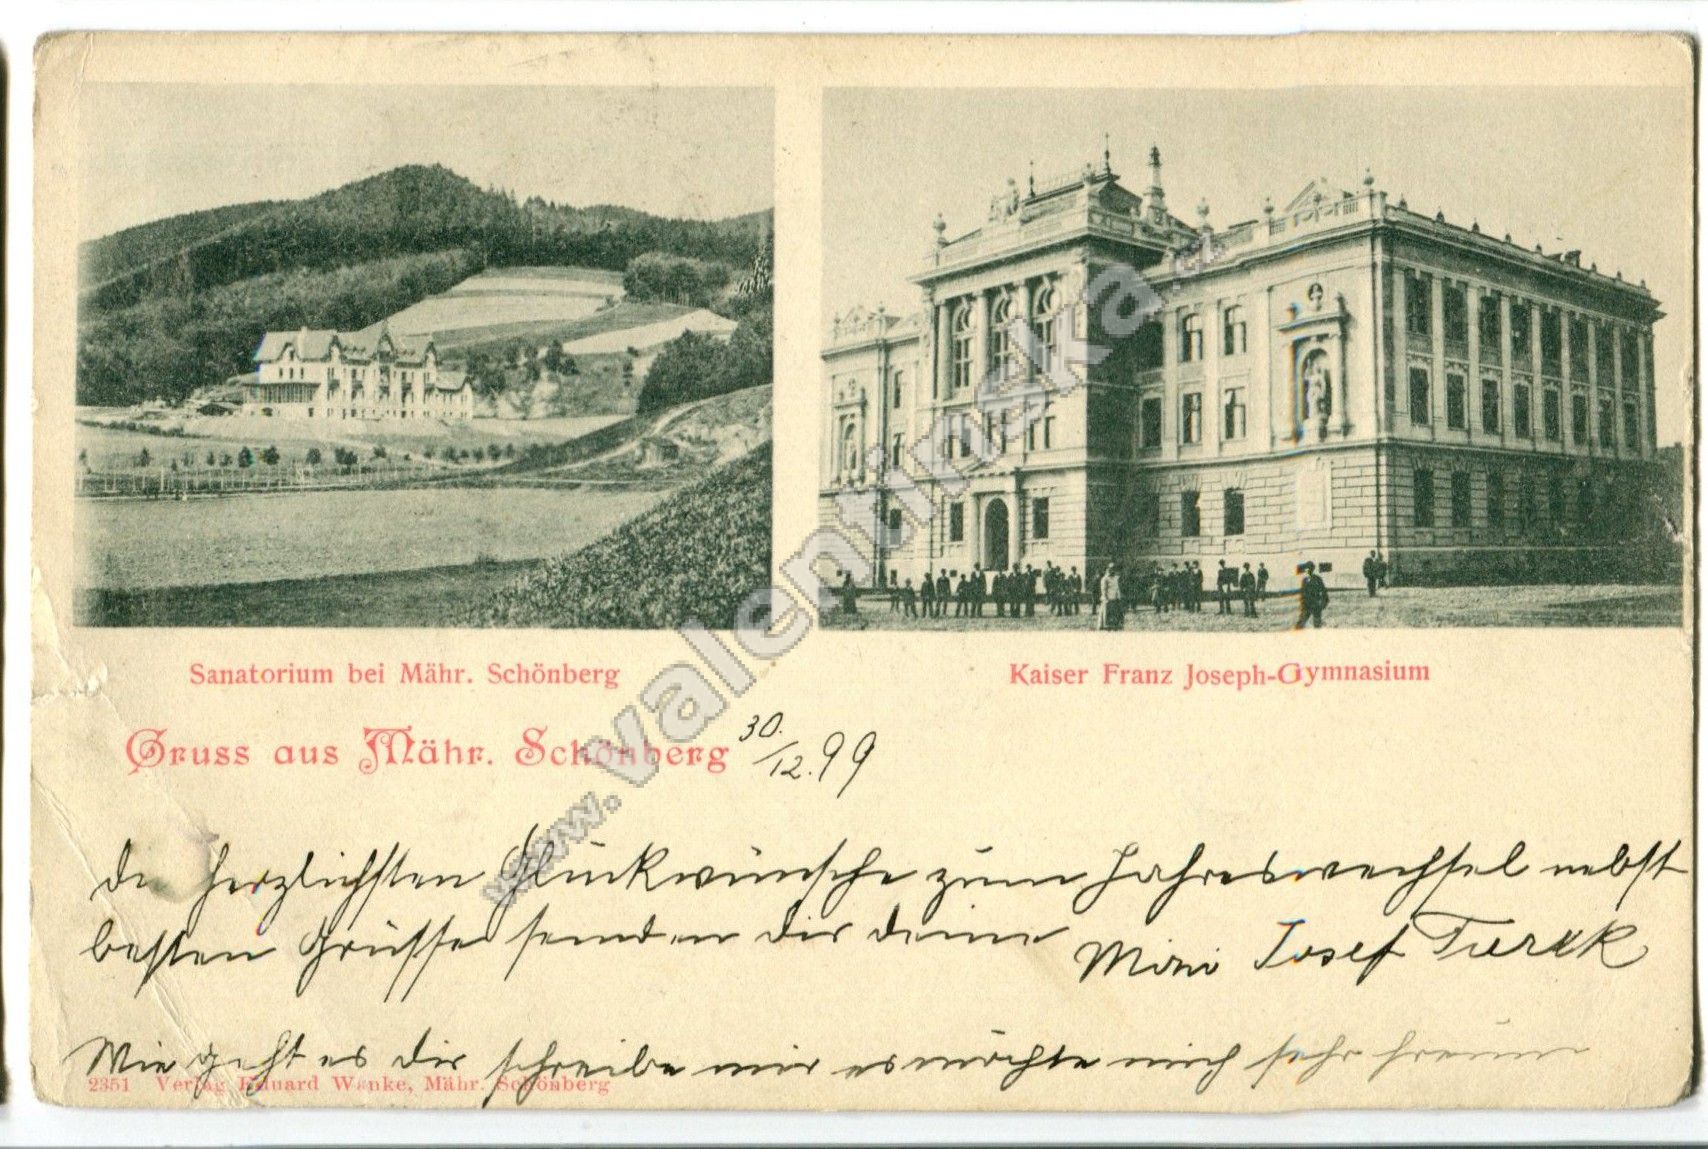 Sanatorium bei Mähr. Schönberg
Kaiser Franz Joseph-Gymnasium
Gruss aus Mähr. Schönberg 30./12.99
die herzlichsten Glückwünsche zum Jahreswechsel nebst
besten Grüsse senden dir deine
Josef
Wie geht es dir schreibe mir es möchte mich sehr freuen
2351 Verlag Eduard Wanke, Mähr. Schönberg
www.valentinska.cz